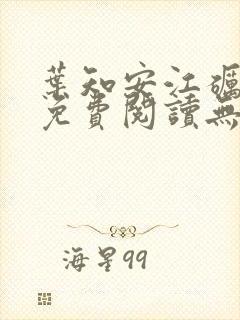 葉知安江礪
免費閱讀無
海星99